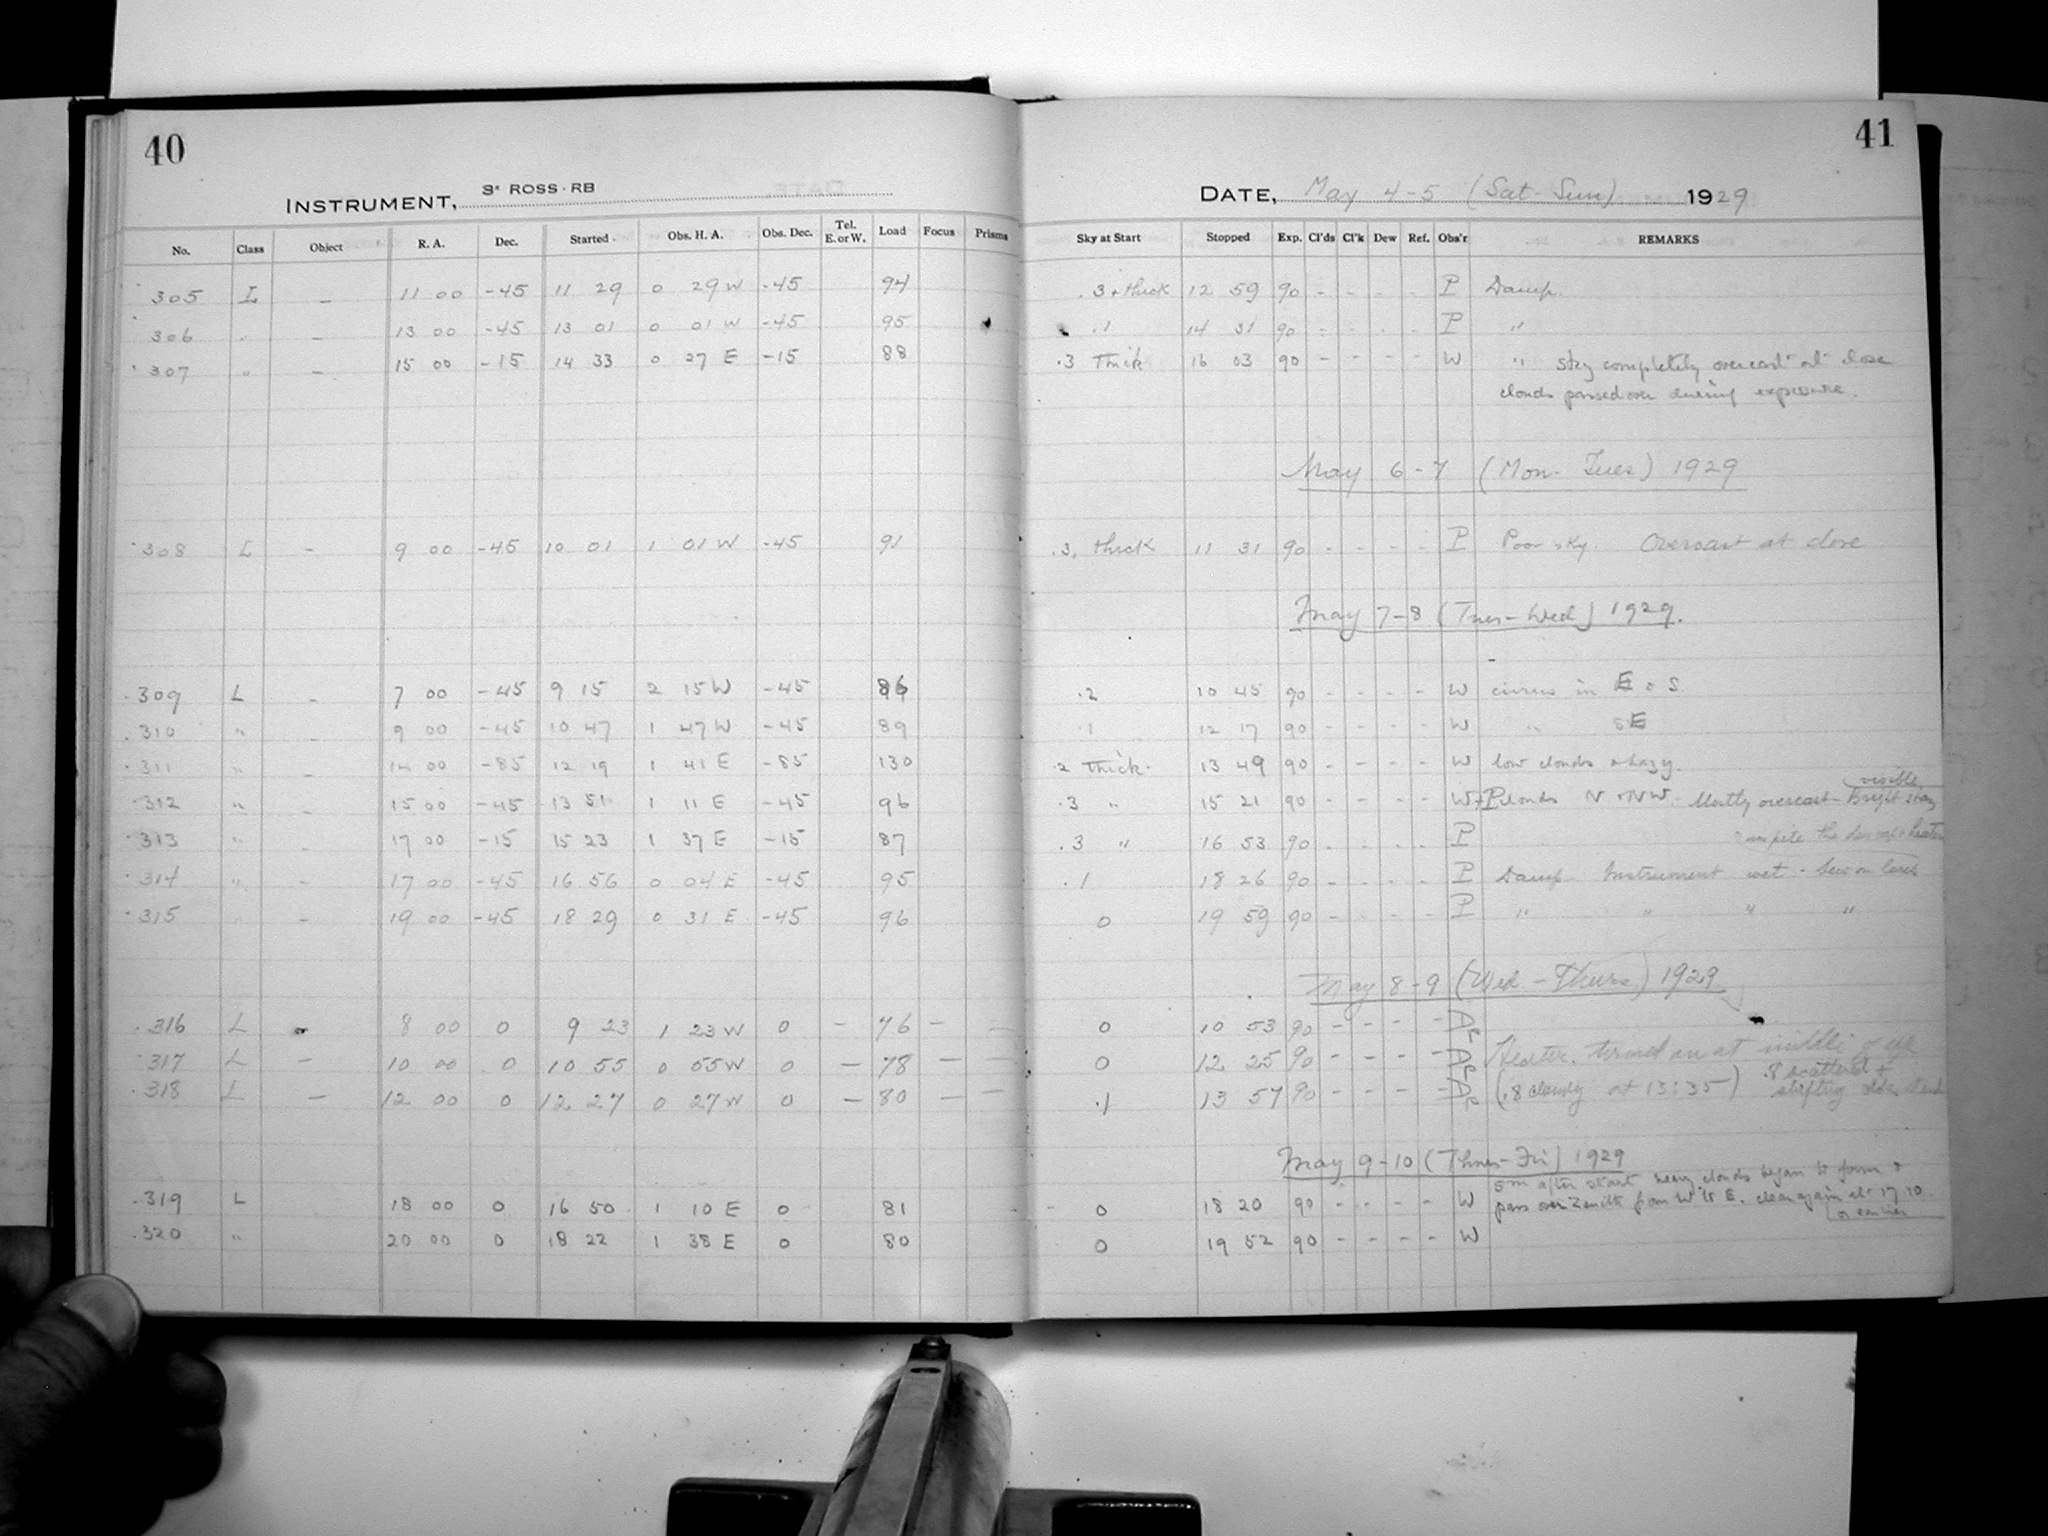 40
INSTRUMENT, 3" ROSS-RB
No. Class Object R. A. Dec. Started Obs. H. A. Obs. Dec. Tel. E. or W. Load Focus Prisms
305 L - 11 00 -45 11 29 0 29 W -45 94
306 " - 13 00 -45 13 01 0 01 W -45 95
307 " - 15 00 -15 14 33 0 27 E -15 88
308 L - 9 00 -45 10 01 1 01 W -45 91
309 L - 7 00 -45 9 15 2 15 W -45 86
310 " - 9 00 -45 10 47 1 47 W -45 89
311 " - 14 00 -85 12 19 1 41 E -85 130
312 " - 15 00 -45 13 51 1 11 E -45 96
313 " - 17 00 -15 15 23 1 37 E -15 87
314 " - 17 00 -45 16 56 0 04 E -45 95
315 " - 19 00 -45 18 29 0 31 E -45 96
316 L - 8 00 0 9 23 1 23 W 0 - 76 - -
317 L - 10 00 0 10 55 0 55 W 0 - 78 - -
318 L - 12 00 0 12 27 0 27 W 0 - 80 - -
319 L 18 00 0 16 50 1 10 E 0 81
320 " 20 00 0 18 22 1 38 E 0 80
41
DATE, May 4-5 (Sat-Sun) 1929
Sky at Start Stopped Exp. Cl'ds Cl'k Dew Ref. Obs'r REMARKS
.3 + thick 12 59 90 - - - - P Damp.
.1 14 31 90 - - - - P "
.3 Thick 16 03 90 - - - - W " sky completely overcast at close
clouds passed over during exposure.
May 6-7 (Mon-Tues) 1929
.3, thick 11 31 90 - - - - P Poor sky. Overcast at close
May 7-8 (Tues-Wed) 1929.
.2 10 45 90 - - - - W cirrus in E & S
.1 12 17 90 - - - - W " SE
.2 Thick 13 49 90 - - - - W low clouds & hazy.
visible
.3 " 15 21 90 - - - - W+P clouds N & NW. Mostly overcast - Bright stay
.3 " 16 53 90 - - - - P
.1 18 26 90 - - - - P Damp Instrument wet - Dew on lens
0 19 59 90 - - - - P " " " "
May 8-9 (Wed-Thurs) 1929
0 10 53 90 - - - - AR
0 12 25 90 - - - - AR Heater turned on at middle of exp
0.1 13 57 90 - - - - AR (.8 cloudy at 13:35) .8 scattered + shifting
May 9-10 (Thurs-Fri) 1929
5m after start heavy clouds began to form &
0 18 20 90 - - - - W pass over Zenith from W to E. clear again at 17 10
or earlier
0 19 52 90 - - - - W